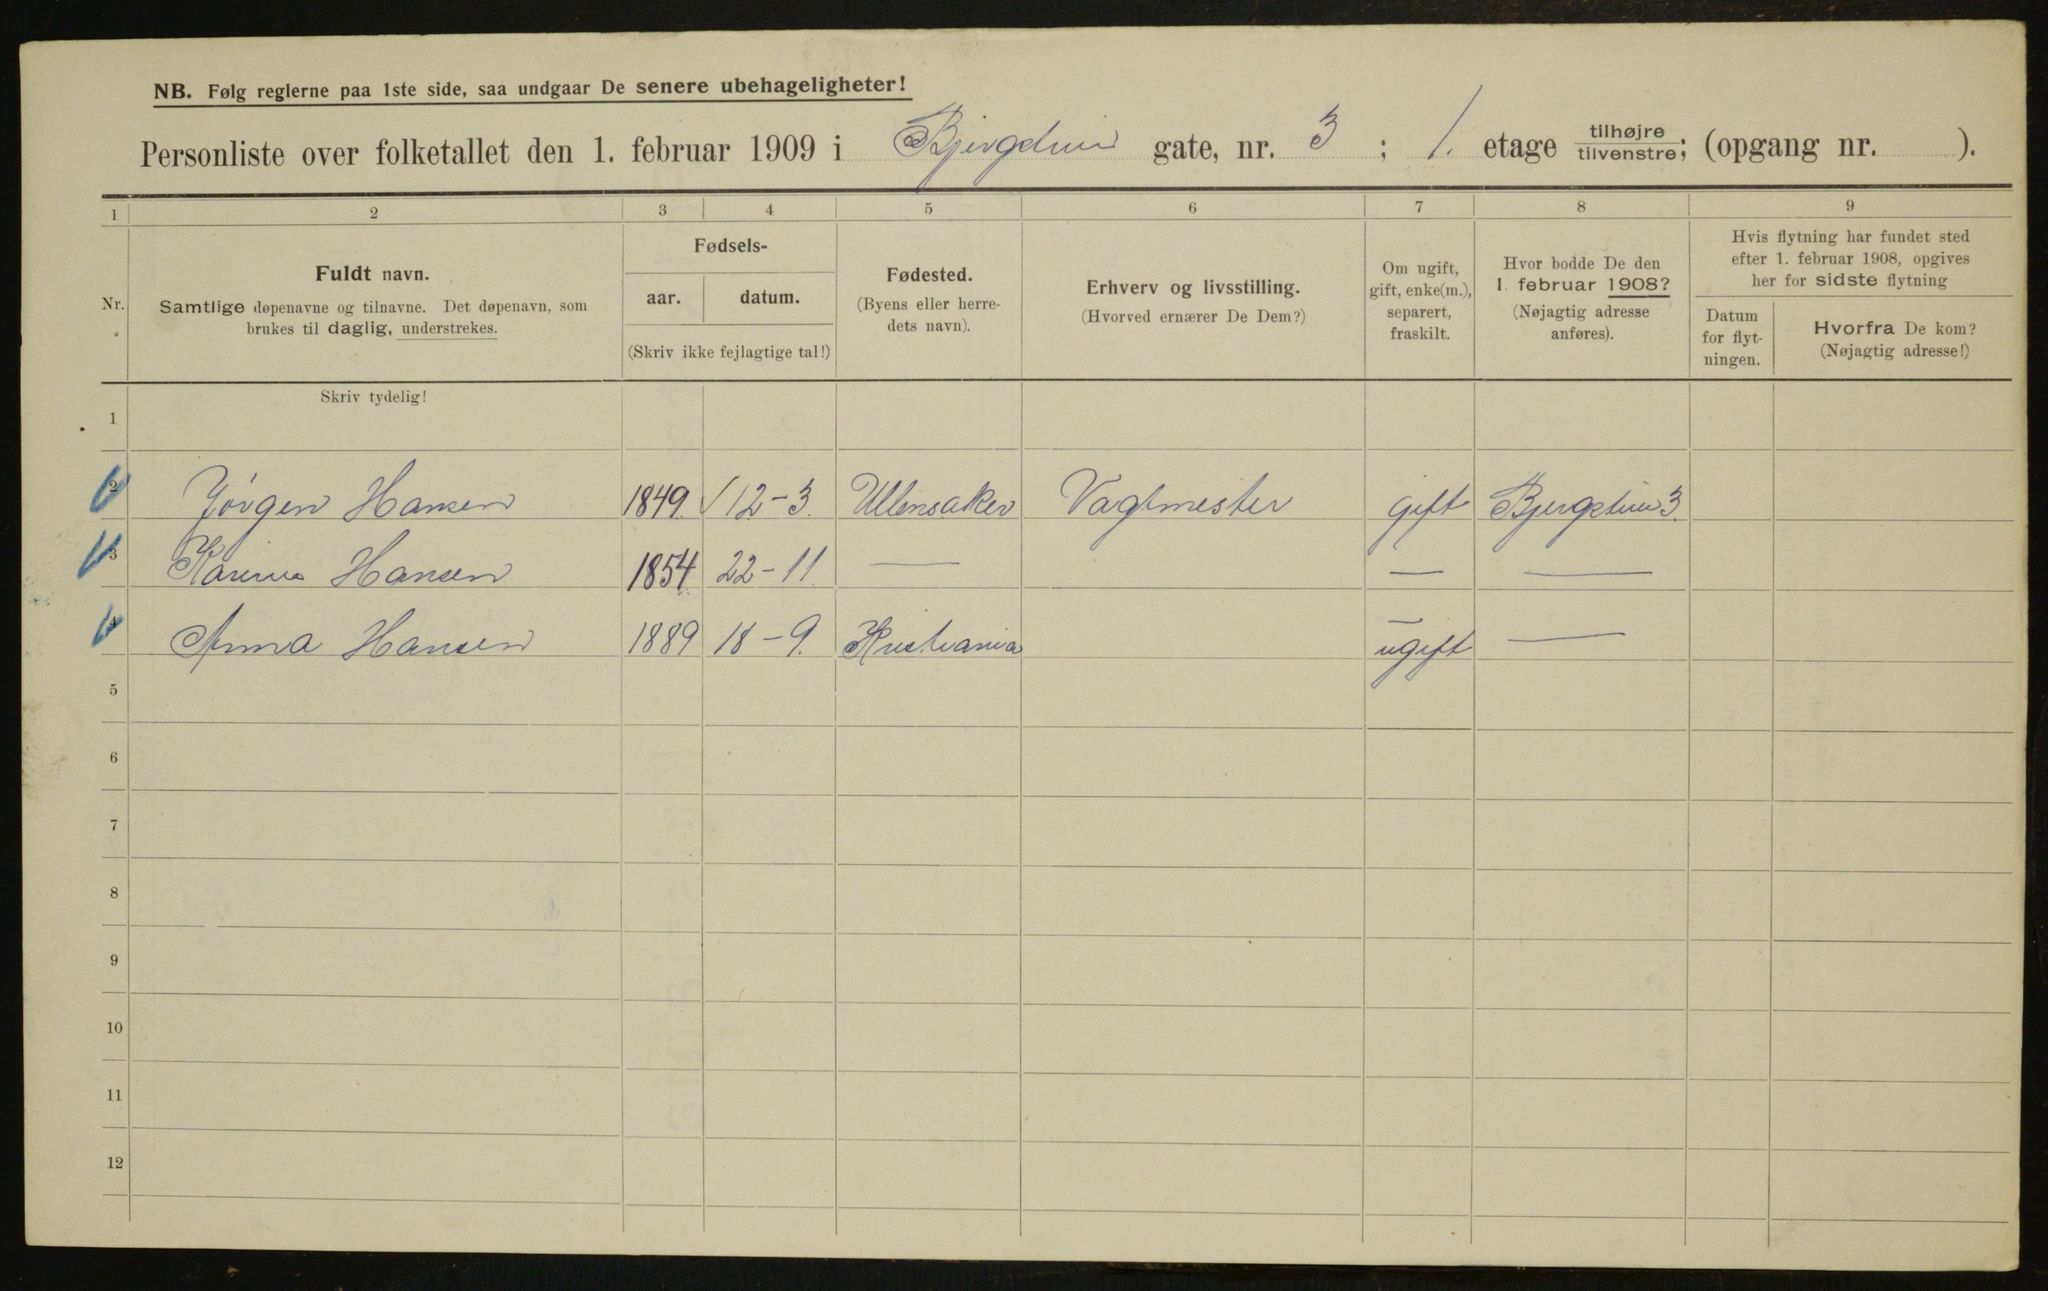 NB. Følg reglerne paa 1ste side, saa undgaar De senere ubehageligheter!
Personliste over folketallet den 1. februar 1909 i Bjergstien gate, nr. 3 ; 1. etage tilhøjre tilvenstre; (opgang nr. ).
1 2 3 4 5 6 7 8 9
Nr.
Fuldt navn.
Samtlige døpenavne og tilnavne. Det døpenavn, som
brukes til daglig, understrekes.
Fødsels-
aar. datum.
(Skriv ikke fejlagtige tal!)
Fødested.
(Byens eller herre-
dets navn).
Erhverv og livsstilling.
(Hvorved ernærer De Dem?)
Om ugift,
gift, enke(m.),
separert,
fraskilt.
Hvor bodde De den
1. februar 1908?
(Nøjagtig adresse
anføres).
Hvis flytning har fundet sted
efter 1. februar 1908, opgives
her for sidste flytning
Datum
for flyt-
ningen.
Hvorfra De kom?
(Nøjagtig adresse!)
Skriv tydelig!
1
2 Jørgen Hansen 1849 12-3. Ullensaker Vagtmester gift Bjergstien 3.
3 Karine Hansen 1854 22-11. — — —
4 Anna Hansen 1889 18-9. Kristiania ugift —
5
6
7
8
9
10
11
12